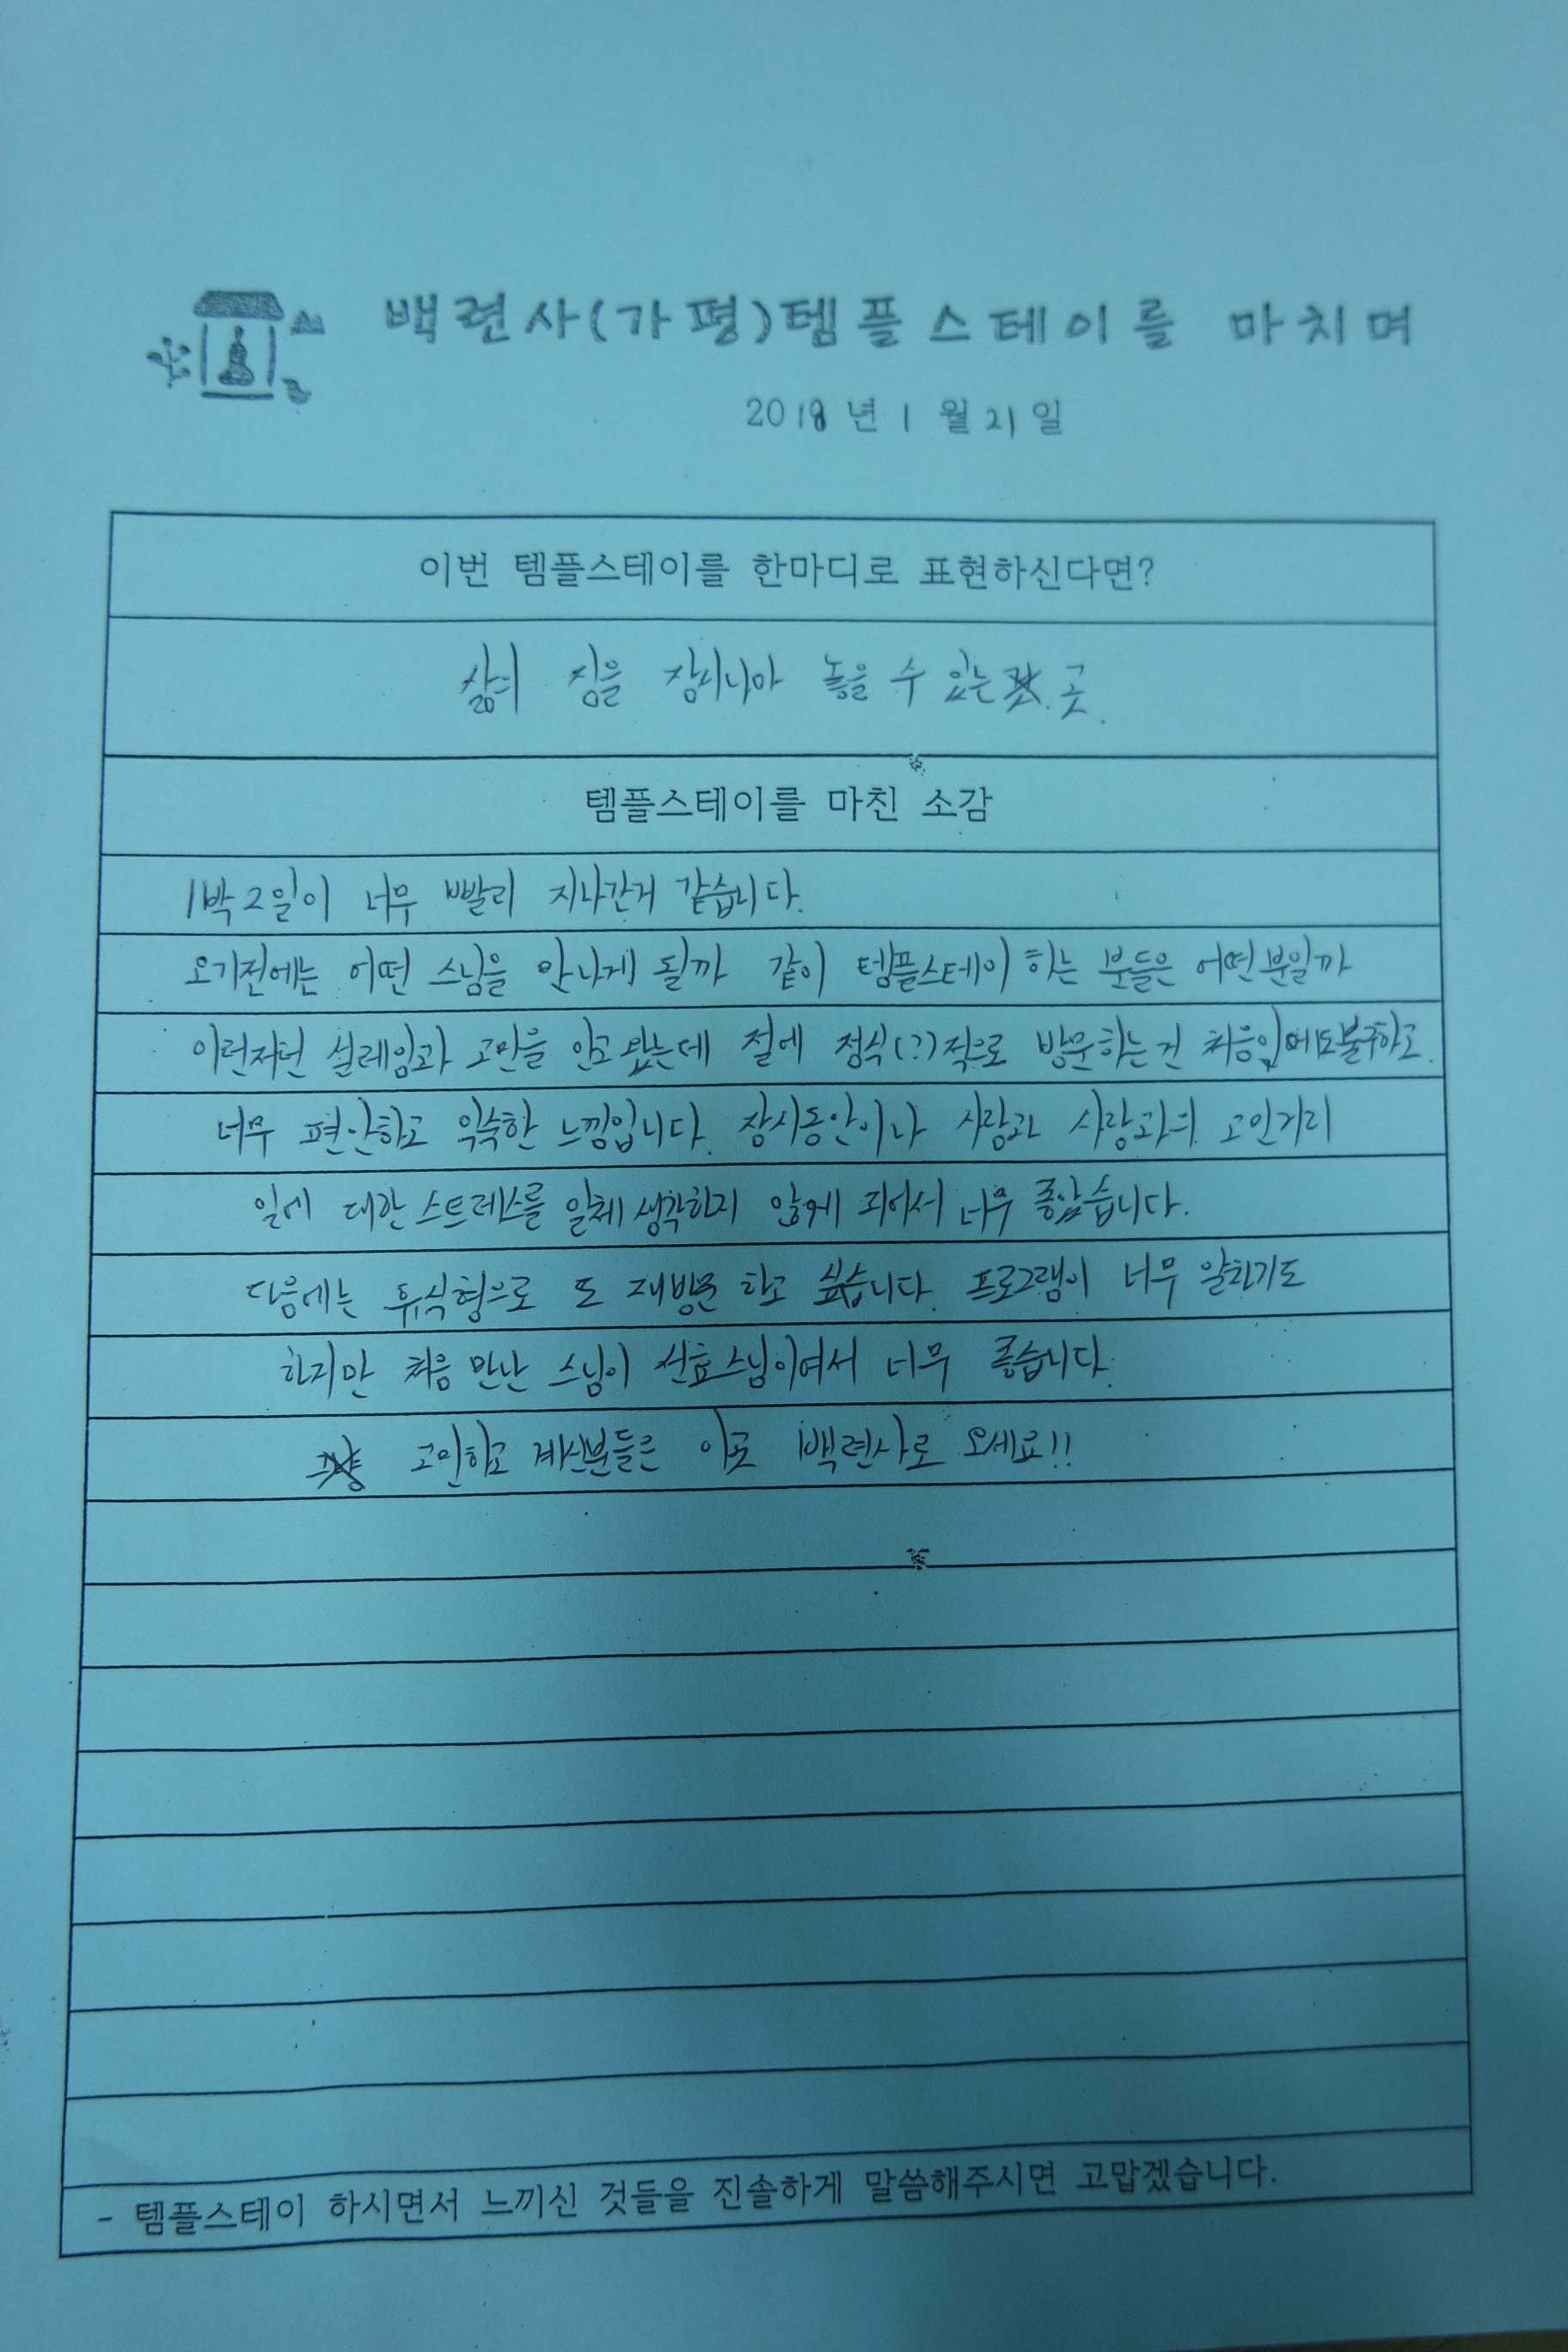 백련사(가평)템플스테이를 마치며
2018년 1월 21일
이번 템플스테이를 한마디로 표현하신다면?
삶의 짐을 잠시나마 놓을 수 있는 곳.
템플스테이를 마친 소감
1박2일이 너무 빨리 지나간거 같습니다.
오기전에는 어떤 스님을 만나게 될까 같이 템플스테이 하는 분들은 어떤분일까
이런저런 설레임과 고민을 안고 왔는데 절에 정식(?)적으로 방문하는건 처음임에도불구하고
너무 편안하고 익숙한 느낌입니다. 잠시동안이나 사람과 사랑과의 고민거리
일에 대한 스트레스를 일체 생각하지 않게 되어서 너무 좋았습니다.
다음에는 휴식형으로 또 재방문 하고 싶습니다. 프로그램이 너무 알차기도
하지만 처음 만난 스님이 선효스님이여서 너무 좋습니다.
고민하고 계신분들은 이곳 백련사로 오세요!!
- 템플스테이 하시면서 느끼신 것들을 진솔하게 말씀해주시면 고맙겠습니다.